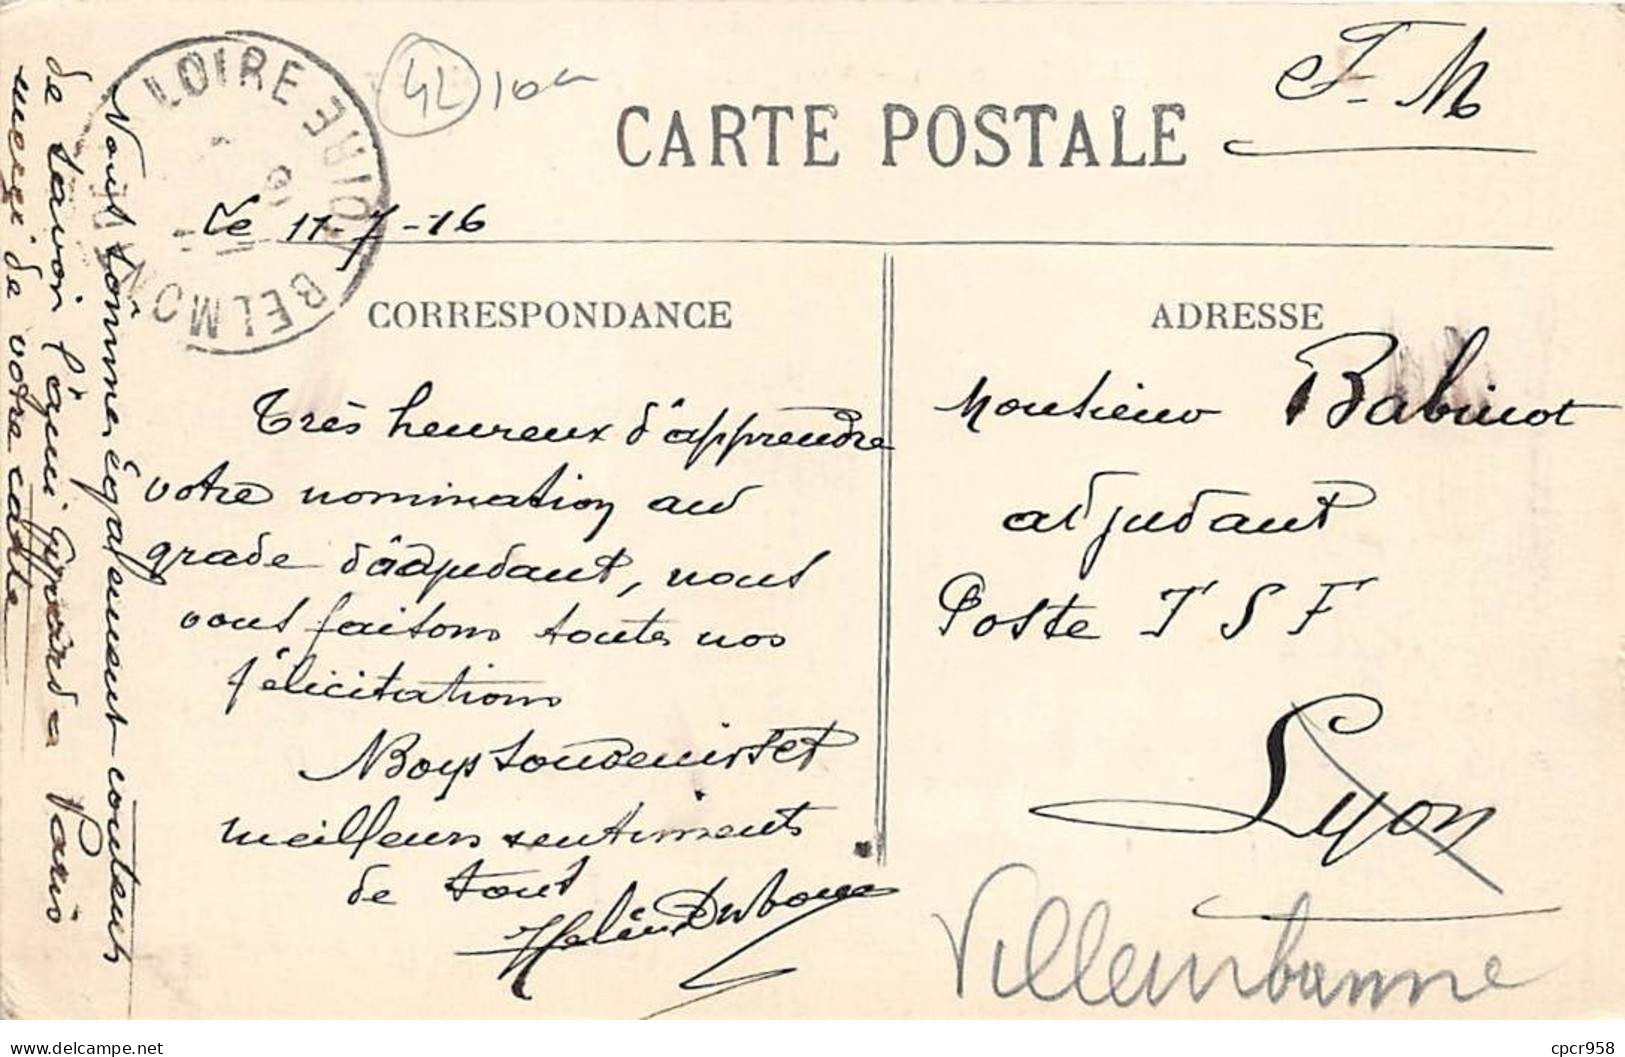 LOIRE LOIRE
BELMONT
42
10
F. M
CARTE POSTALE
Le 11-7-16
CORRESPONDANCE
ADRESSE
Très heureux d'apprendre
votre nomination au
grade d'adjudant, nous
vous faisons toutes nos
félicitations
Bons souvenirs et
meilleurs sentiments
de tous
Nous sommes également contents
de savoir l'ami Guérard à Paris
merci de votre carte
Monsieur Babinot
adjudant
Poste T S F
Lyon
Villeurbanne
www.delcampe.net
cpcr958